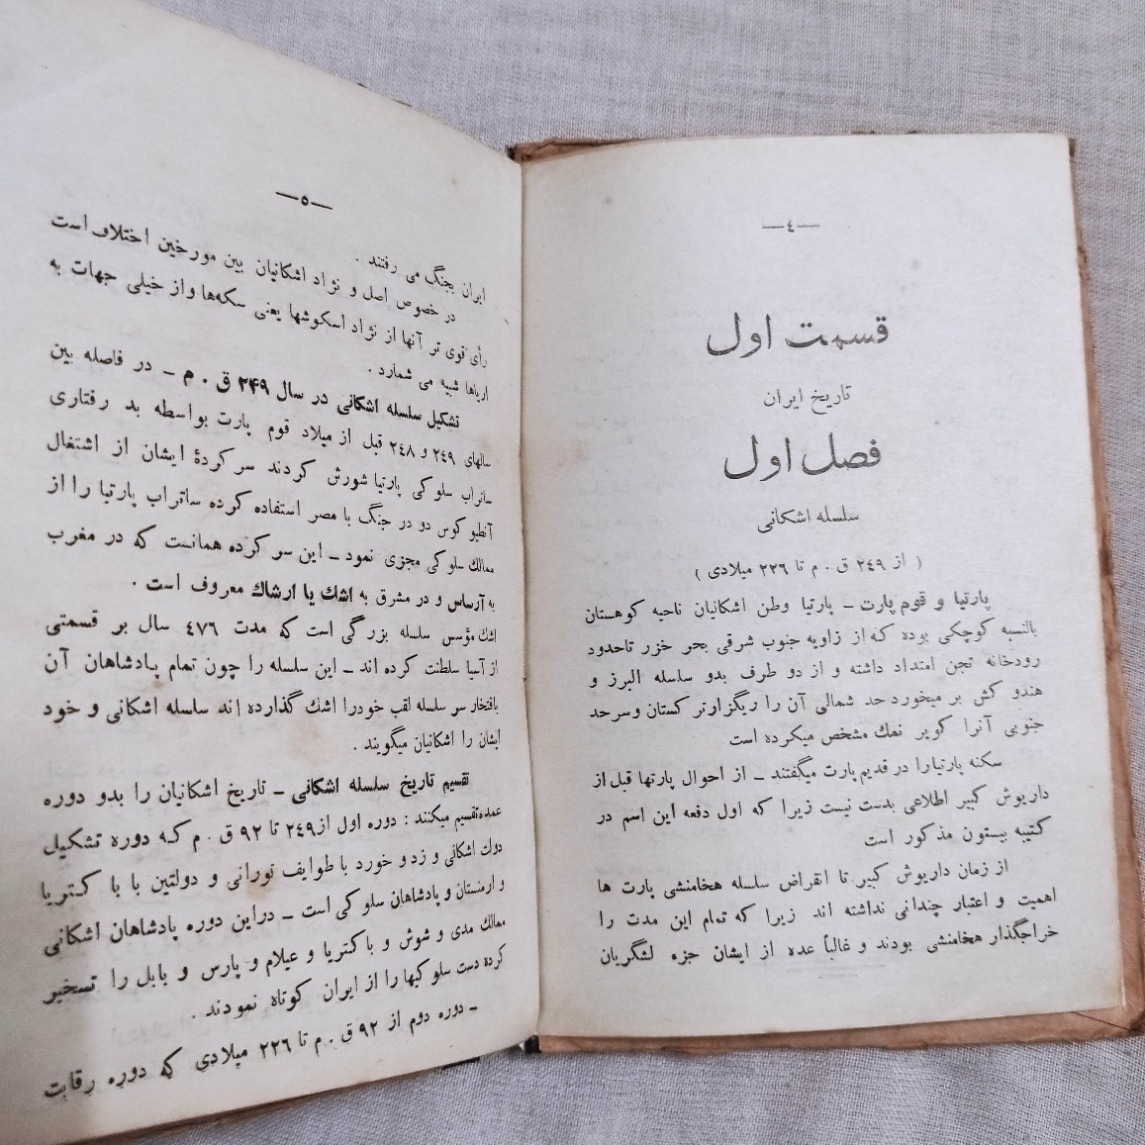 —٤—
قسمت اول
تاریخ ایران
فصل اول
سلسله اشکانی
( از ٢٤٩ ق . م تا ٢٢٦ میلادی )
پارتیا و قوم پارت ــ پارتیا وطن اشکانیان ناحیه کوهستان
بالنسبه کوچکی بوده که از زاویه جنوب شرقی بحر خزر تاحدود
رودخانه تجن امتداد داشته و از دو طرف بدو سلسله البرز و
هندو کش بر میخورد حد شمالی آن را ریگزار ترکستان وسرحد
جنوبی آنرا کویر نمك مشخص میکرده است
سکنه پارتیارا در قدیم پارت میگفتند ــ از احوال پارتها قبل از
داریوش کبیر اطلاعی بدست نیست زیرا که اول دفعه این اسم در
کتیبه بیستون مذکور است
از زمان داریوش کبیر تا انقراض سلسله هخامنشی پارت ها
اهمیت و اعتبار چندانی نداشته اند زیرا که تمام این مدت را
خراجگذار هخامنشی بودند و غالباً عده از ایشان جزء لشگریان
—٥—
ایران بجنگ می رفتند .
در خصوص اصل و نژاد اشکانیان بین مورخین اختلاف است
رأی قوی تر آنها از نژاد اسکوشها یعنی سکه‌ها واز خیلی جهات به
اریاها شبیه می شمارد .
تشکیل سلسله اشکانی در سال ٢٤٩ ق . م ــ در فاصله بین
سالهای ٢٤٩ و ٢٤٨ قبل از میلاد قوم پارت بواسطه بد رفتاری
ساتراب سلو کی پارتیا شورش کردند سر کردهٔ ایشان از اشتغال
آنطیو کوس دو در جنگ با مصر استفاده کرده ساتراب پارتیا را از
ممالك سلو کی مجزی نمود ــ این سر کرده همانست که در مغرب
به آرساس و در مشرق به اشك یا ارشاك معروف است .
اشك مؤسس سلسله بزرگی است که مدت ٤٧٦ سال بر قسمتی
از آسیا سلطنت کرده اند ــ این سلسله را چون تمام پادشاهان آن
بافتخار سر سلسله لقب خودرا اشك گذارده اند سلسله اشکانی و خود
ایشان را اشکانیان میگویند .
تقسیم تاریخ سلسله اشکانی ــ تاریخ اشکانیان را بدو دوره
عمده تقسیم میکنند : دوره اول از ٢٤٩ تا ٩٢ ق . م که دوره تشکیل
دولت اشکانی و زد و خورد با طوایف تورانی و دولتین با با کتریا
و ارمنستان و پادشاهان سلو کی است ــ دراین دوره پادشاهان اشکانی
ممالك مدی و شوش و باکتریا و عیلام و پارس و بابل را تسخیر
کرده دست سلو کیها را از ایران کوتاه نمودند .
ــ دوره دوم از ٩٢ ق . م تا ٢٢٦ میلادی که دوره رقابت